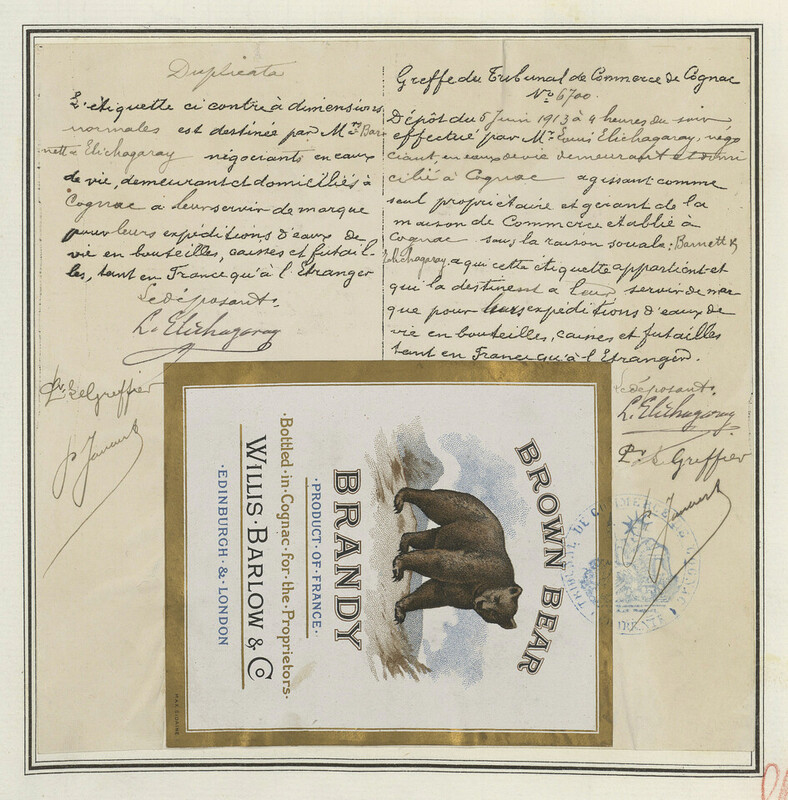 Duplicata
L'étiquette ci contre à dimensions
normales est destinée par Mrs Bar
nett & Elichagaray négociants en eaux
de vie, demeurant et domiciliés à
Cognac à leur servir de marque
pour leurs expéditions d'eaux de
vie en bouteilles, caisses et futail-
les, tant en France qu'à l'Etranger
Le déposant.
L. Elichagaray
Pr Le Greffier
Greffe du Tribunal de Commerce de Cognac
No 6700.
Dépôt du 6 Juin 1913 à 4 heures du soir
effectué par Mr Louis Elichagaray, négo
ciant, en eaux de vie demeurant et domi
cilié à Cognac agissant comme
seul propriétaire et gérant de la
maison de Commerce etablie à
Cognac sous la raison sociale: Barnett &
Elichagaray, a qui cette étiquette appartient et
qui la destinent a leur servir de mar
que pour leurs expéditions d'eaux de
vie en bouteilles, caisses et futailles
tant en France qu'à l'Etranger.
Le déposant.
L. Elichagaray
Pr Le Greffier
TRIBUNAL DE COMMERCE DE COGNAC
BROWN BEAR
BRANDY
·PRODUCT·OF·FRANCE·
·Bottled·in·Cognac·for·the·Proprietors·
WILLIS·BARLOW & Co
·EDINBURGH·&·LONDON